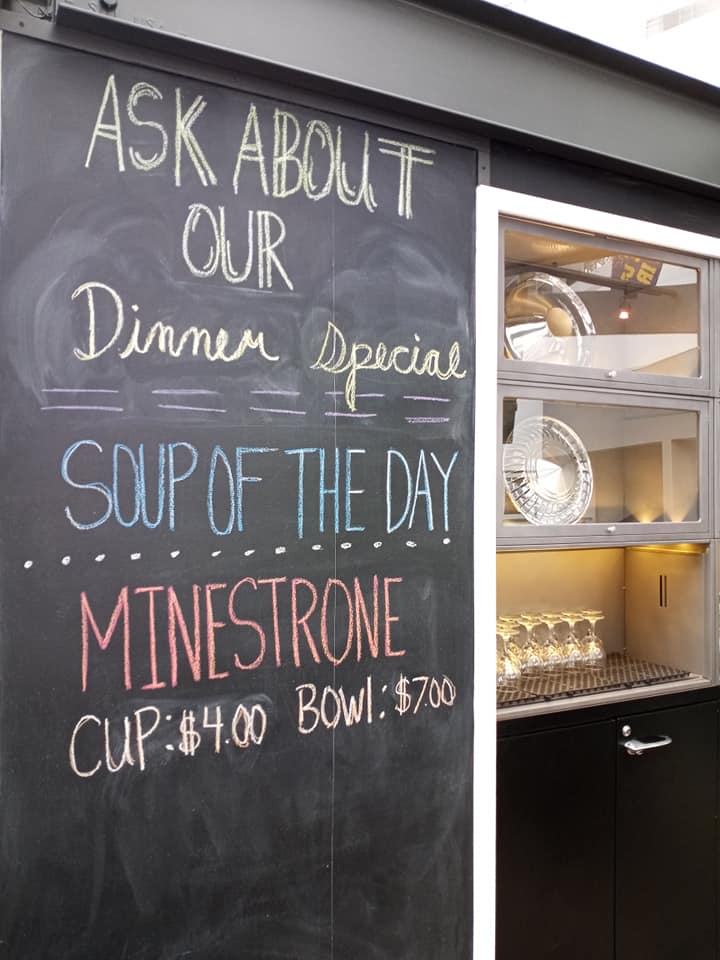 ASK ABOUT
OUR
Dinner Special
SOUP OF THE DAY
MINESTRONE
CUP: $4.00 BOWl: $7.00